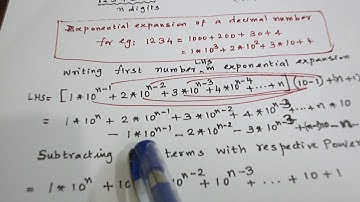 n digits
Exponential expansion of a decimal number
for eg: 1234 = 1000+200+30+4
= 1*10³+2*10²+3*10+4
LHS
Writing first number in expansion
LHS= [1*10ⁿ⁻¹+2*10ⁿ⁻²+3*10ⁿ⁻³+4*10ⁿ⁻⁴+...+n](10-1)+n+1
= 1*10ⁿ + 2*10ⁿ⁻¹ + 3*10ⁿ⁻² + 4*10ⁿ⁻³ + ...+n*10
- 1*10ⁿ⁻¹ - 2*10ⁿ⁻² - 3*10ⁿ⁻³ - n
Subtracting terms with respective Power
= 1*10ⁿ + 10 ⁿ⁻² + 10ⁿ⁻³ + ... + 10 + 1